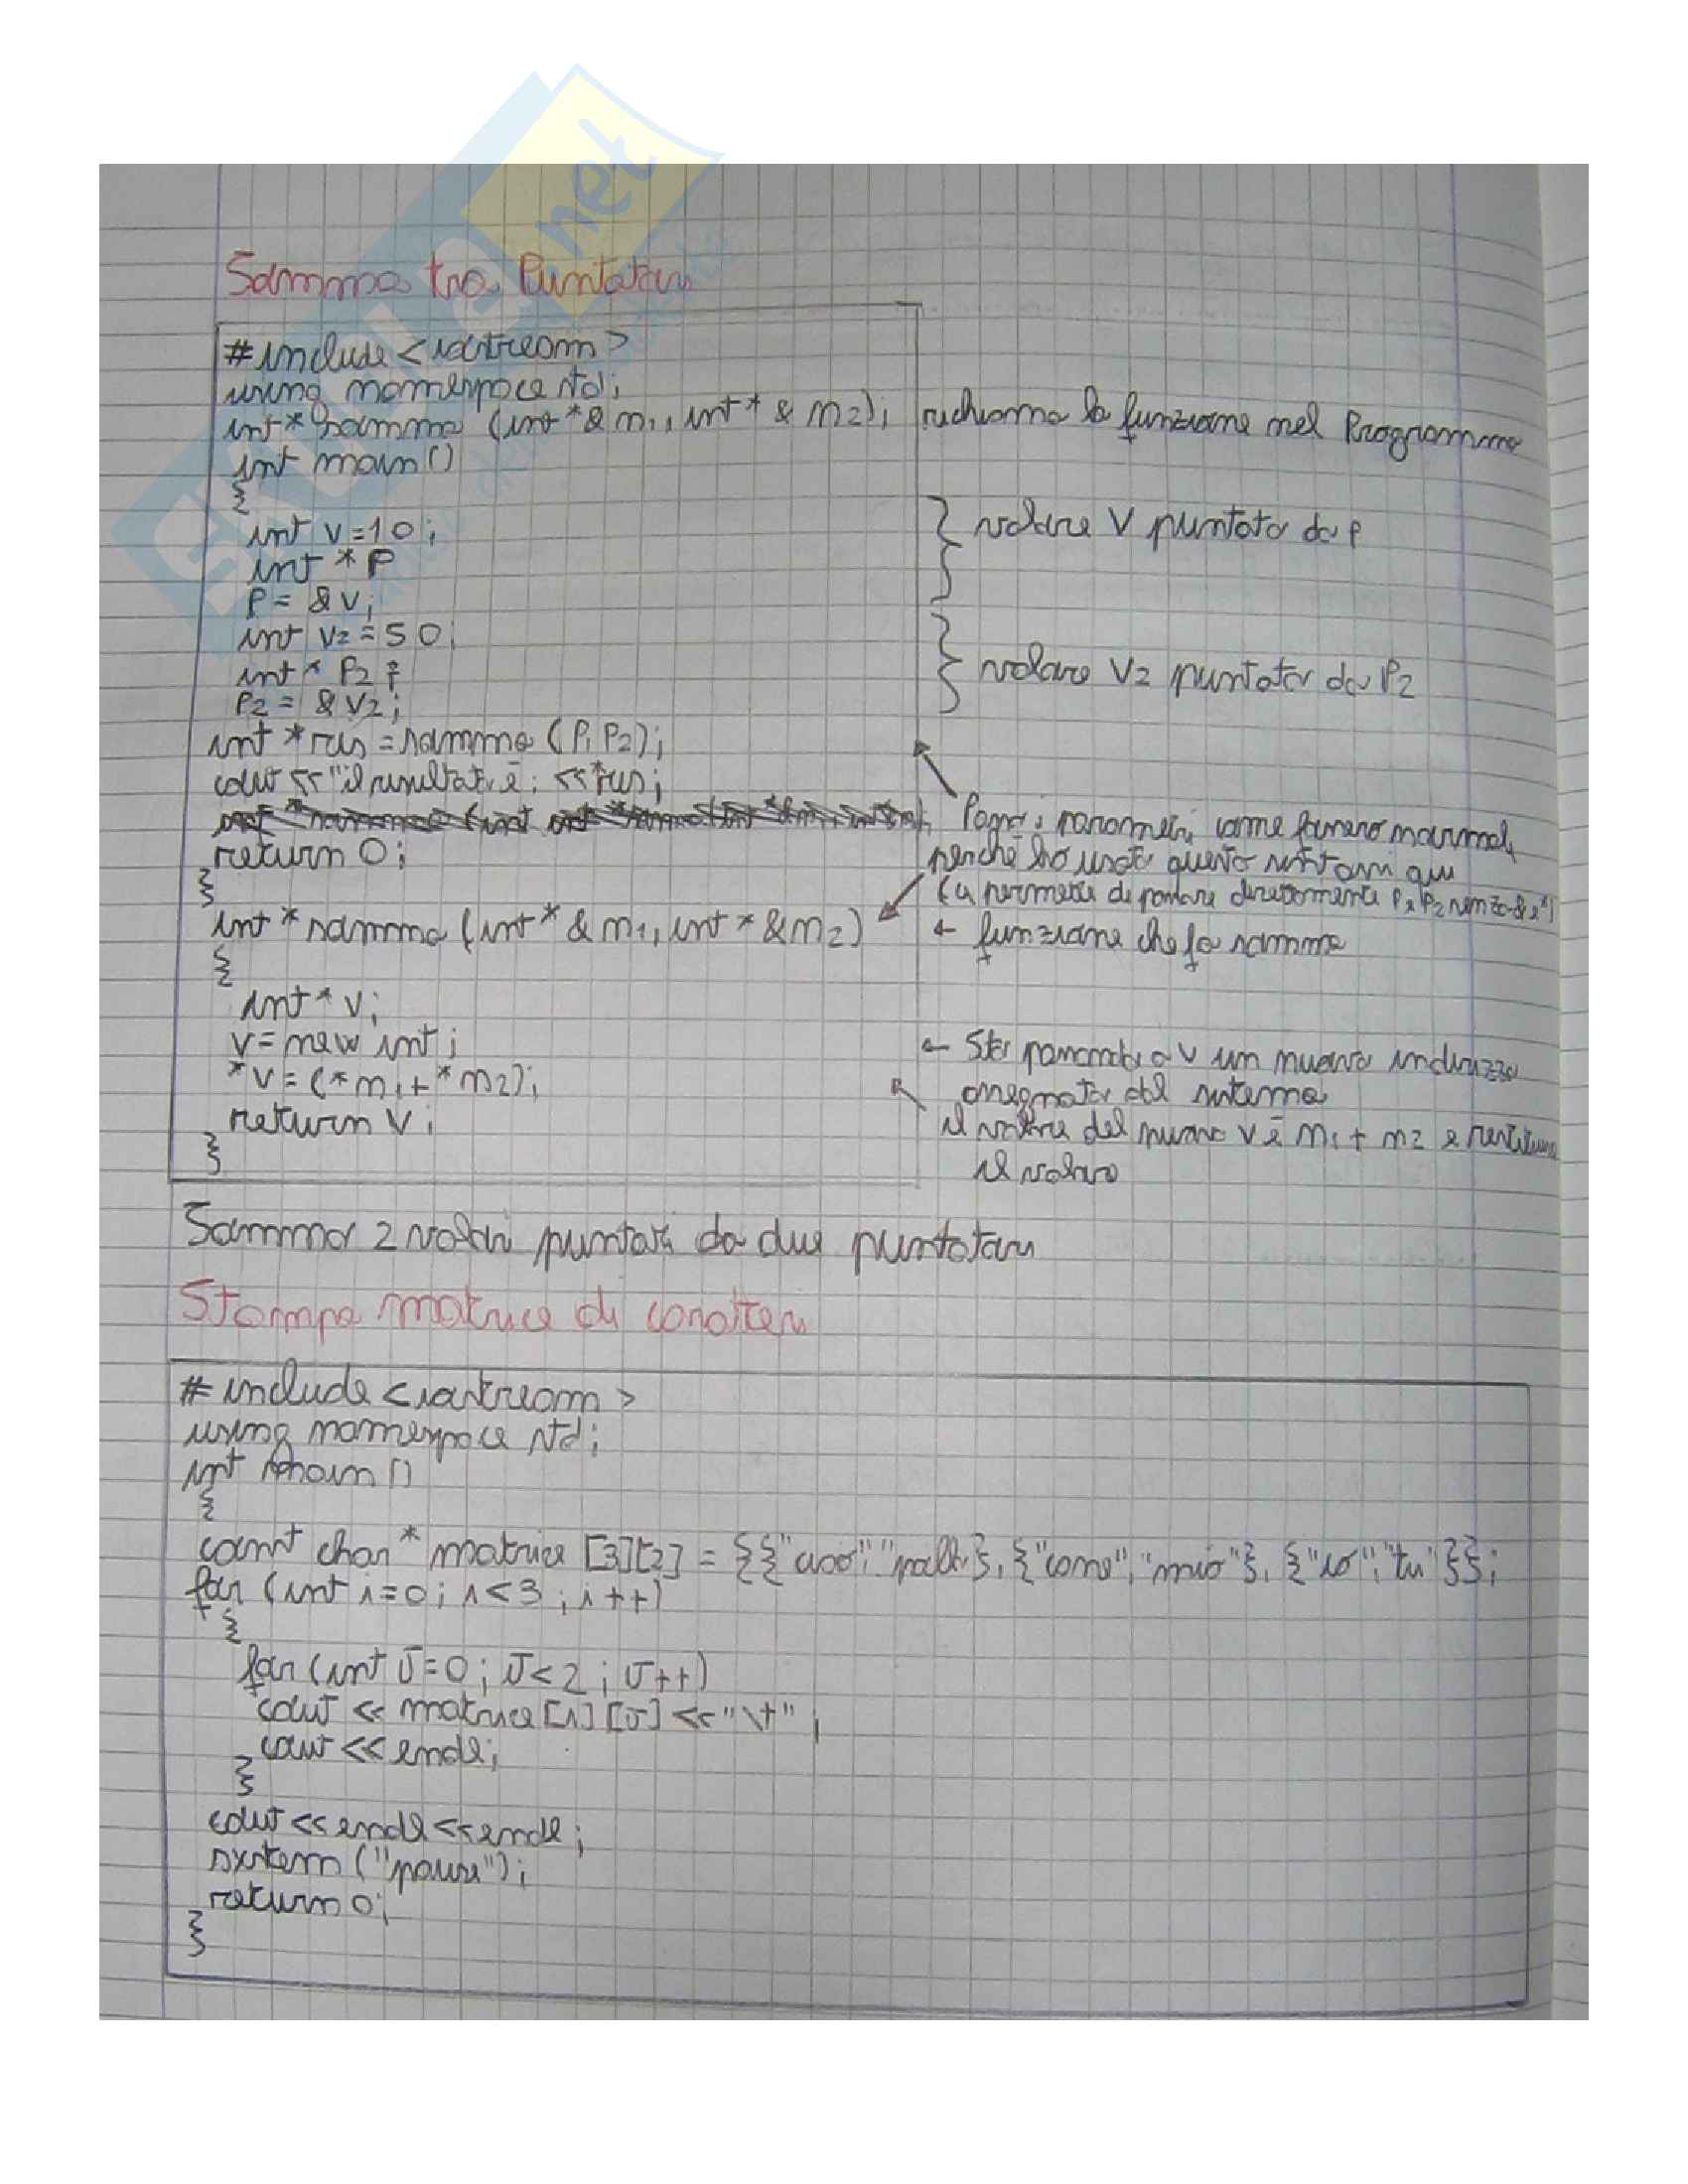 Somma tra Puntatori
#include <iostream>
using namespace std;
int* somma (int*& n1, int*& n2);   richiamo la funzione nel Programma
int main()
{
int v=10;   } valore V puntato da P
int *P
P= &v;
int v2=50;   } valore V2 puntato da P2
int* P2;
P2= &v2;
int *ris=somma (P, P2);
cout <<"il risultato è: <<*ris;
Passo i parametri come fossero normali
return 0;   perché ho usato questa sintassi qui
}   (ci permette di passare direttamente P e P2 senza & e *)
int *somma (int*& n1, int*&n2)   ← funzione che fa somma
{
int* v;
v=new int;   ← Sto passando a v un nuovo indirizzo
*v=(*n1+*n2);   assegnato dal sistema
return v;   il valore del nuovo v è n1 + n2 e restituisce
}   il valore
Somma 2 valori puntati da due puntatori
Stampa matrice di caratteri
#include <iostream>
using namespace std;
int main()
{
const char* matrice [3][2] = {{"ciao", }, {"come", "mio"}, {"io", "tu"}};
for (int i=0; i<3; i++)
{
for (int J=0; J<2; J++)
cout << matrice[i][J] <<"\t";
cout << endl;
}
cout << endl << endl;
system ("pause");
return 0;
}